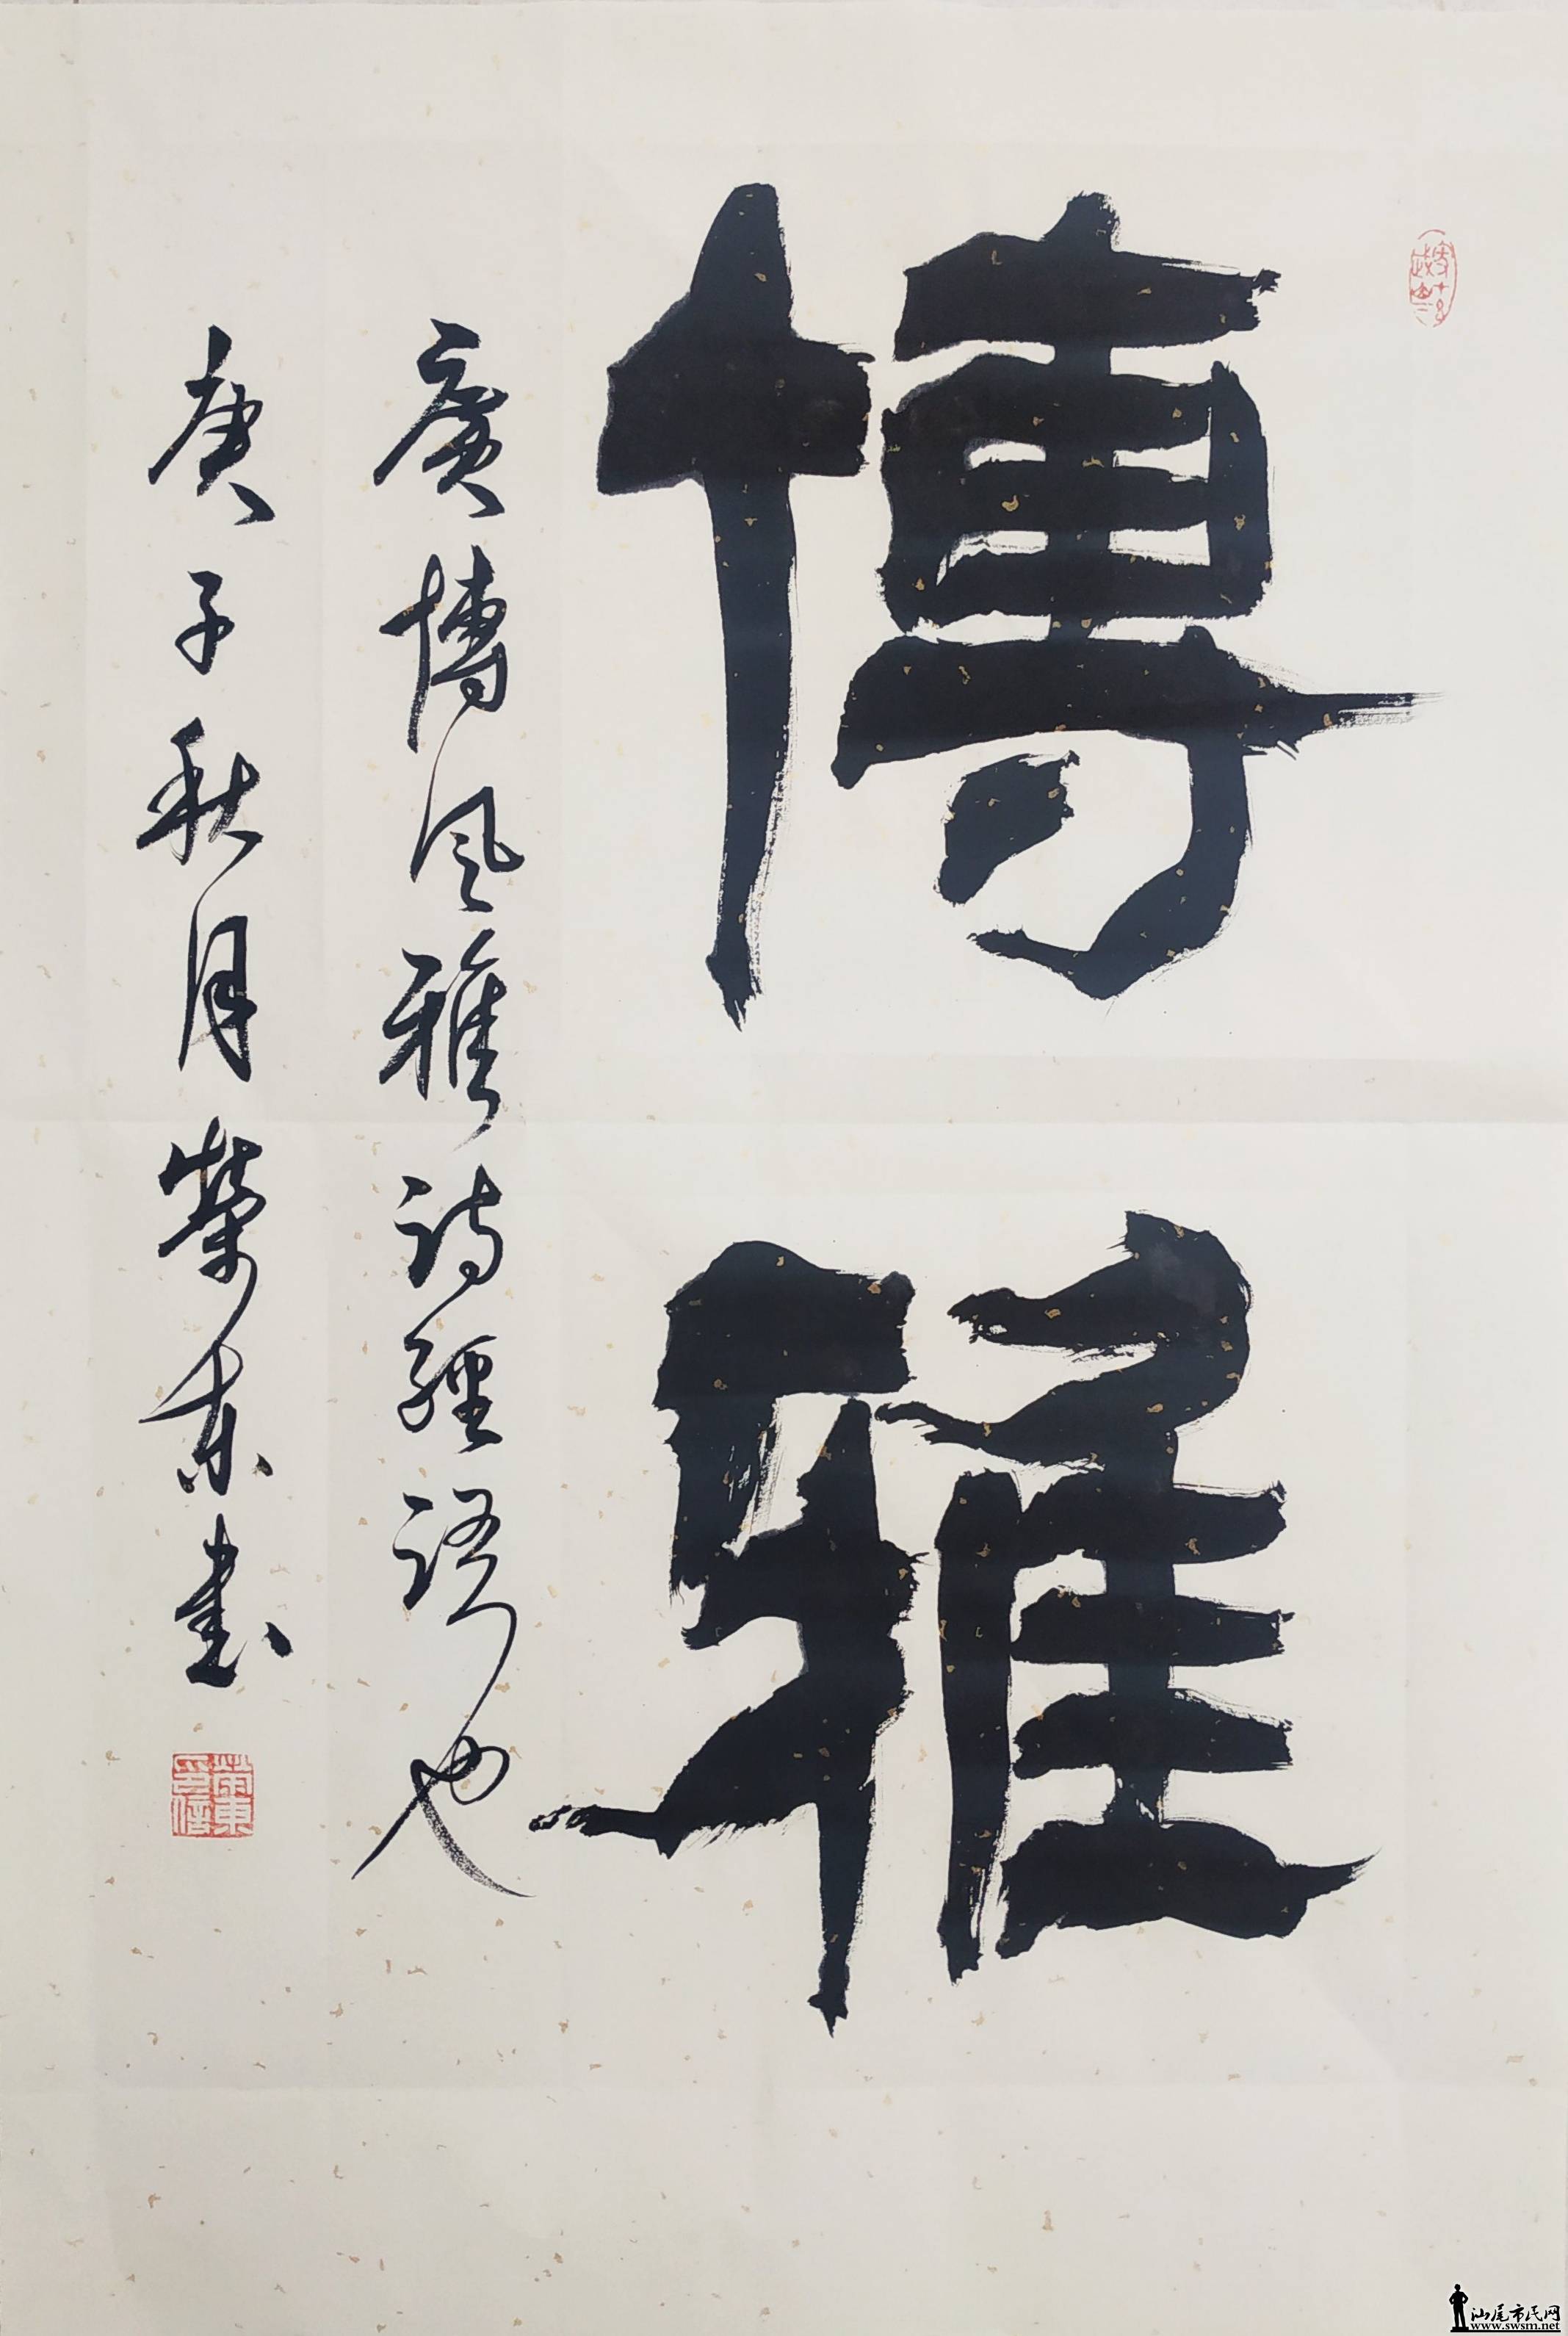 博雅
廣博風雅詩經語也
庚子秋月榮東書
榮東印信
汕尾市民网
www.swsm.net